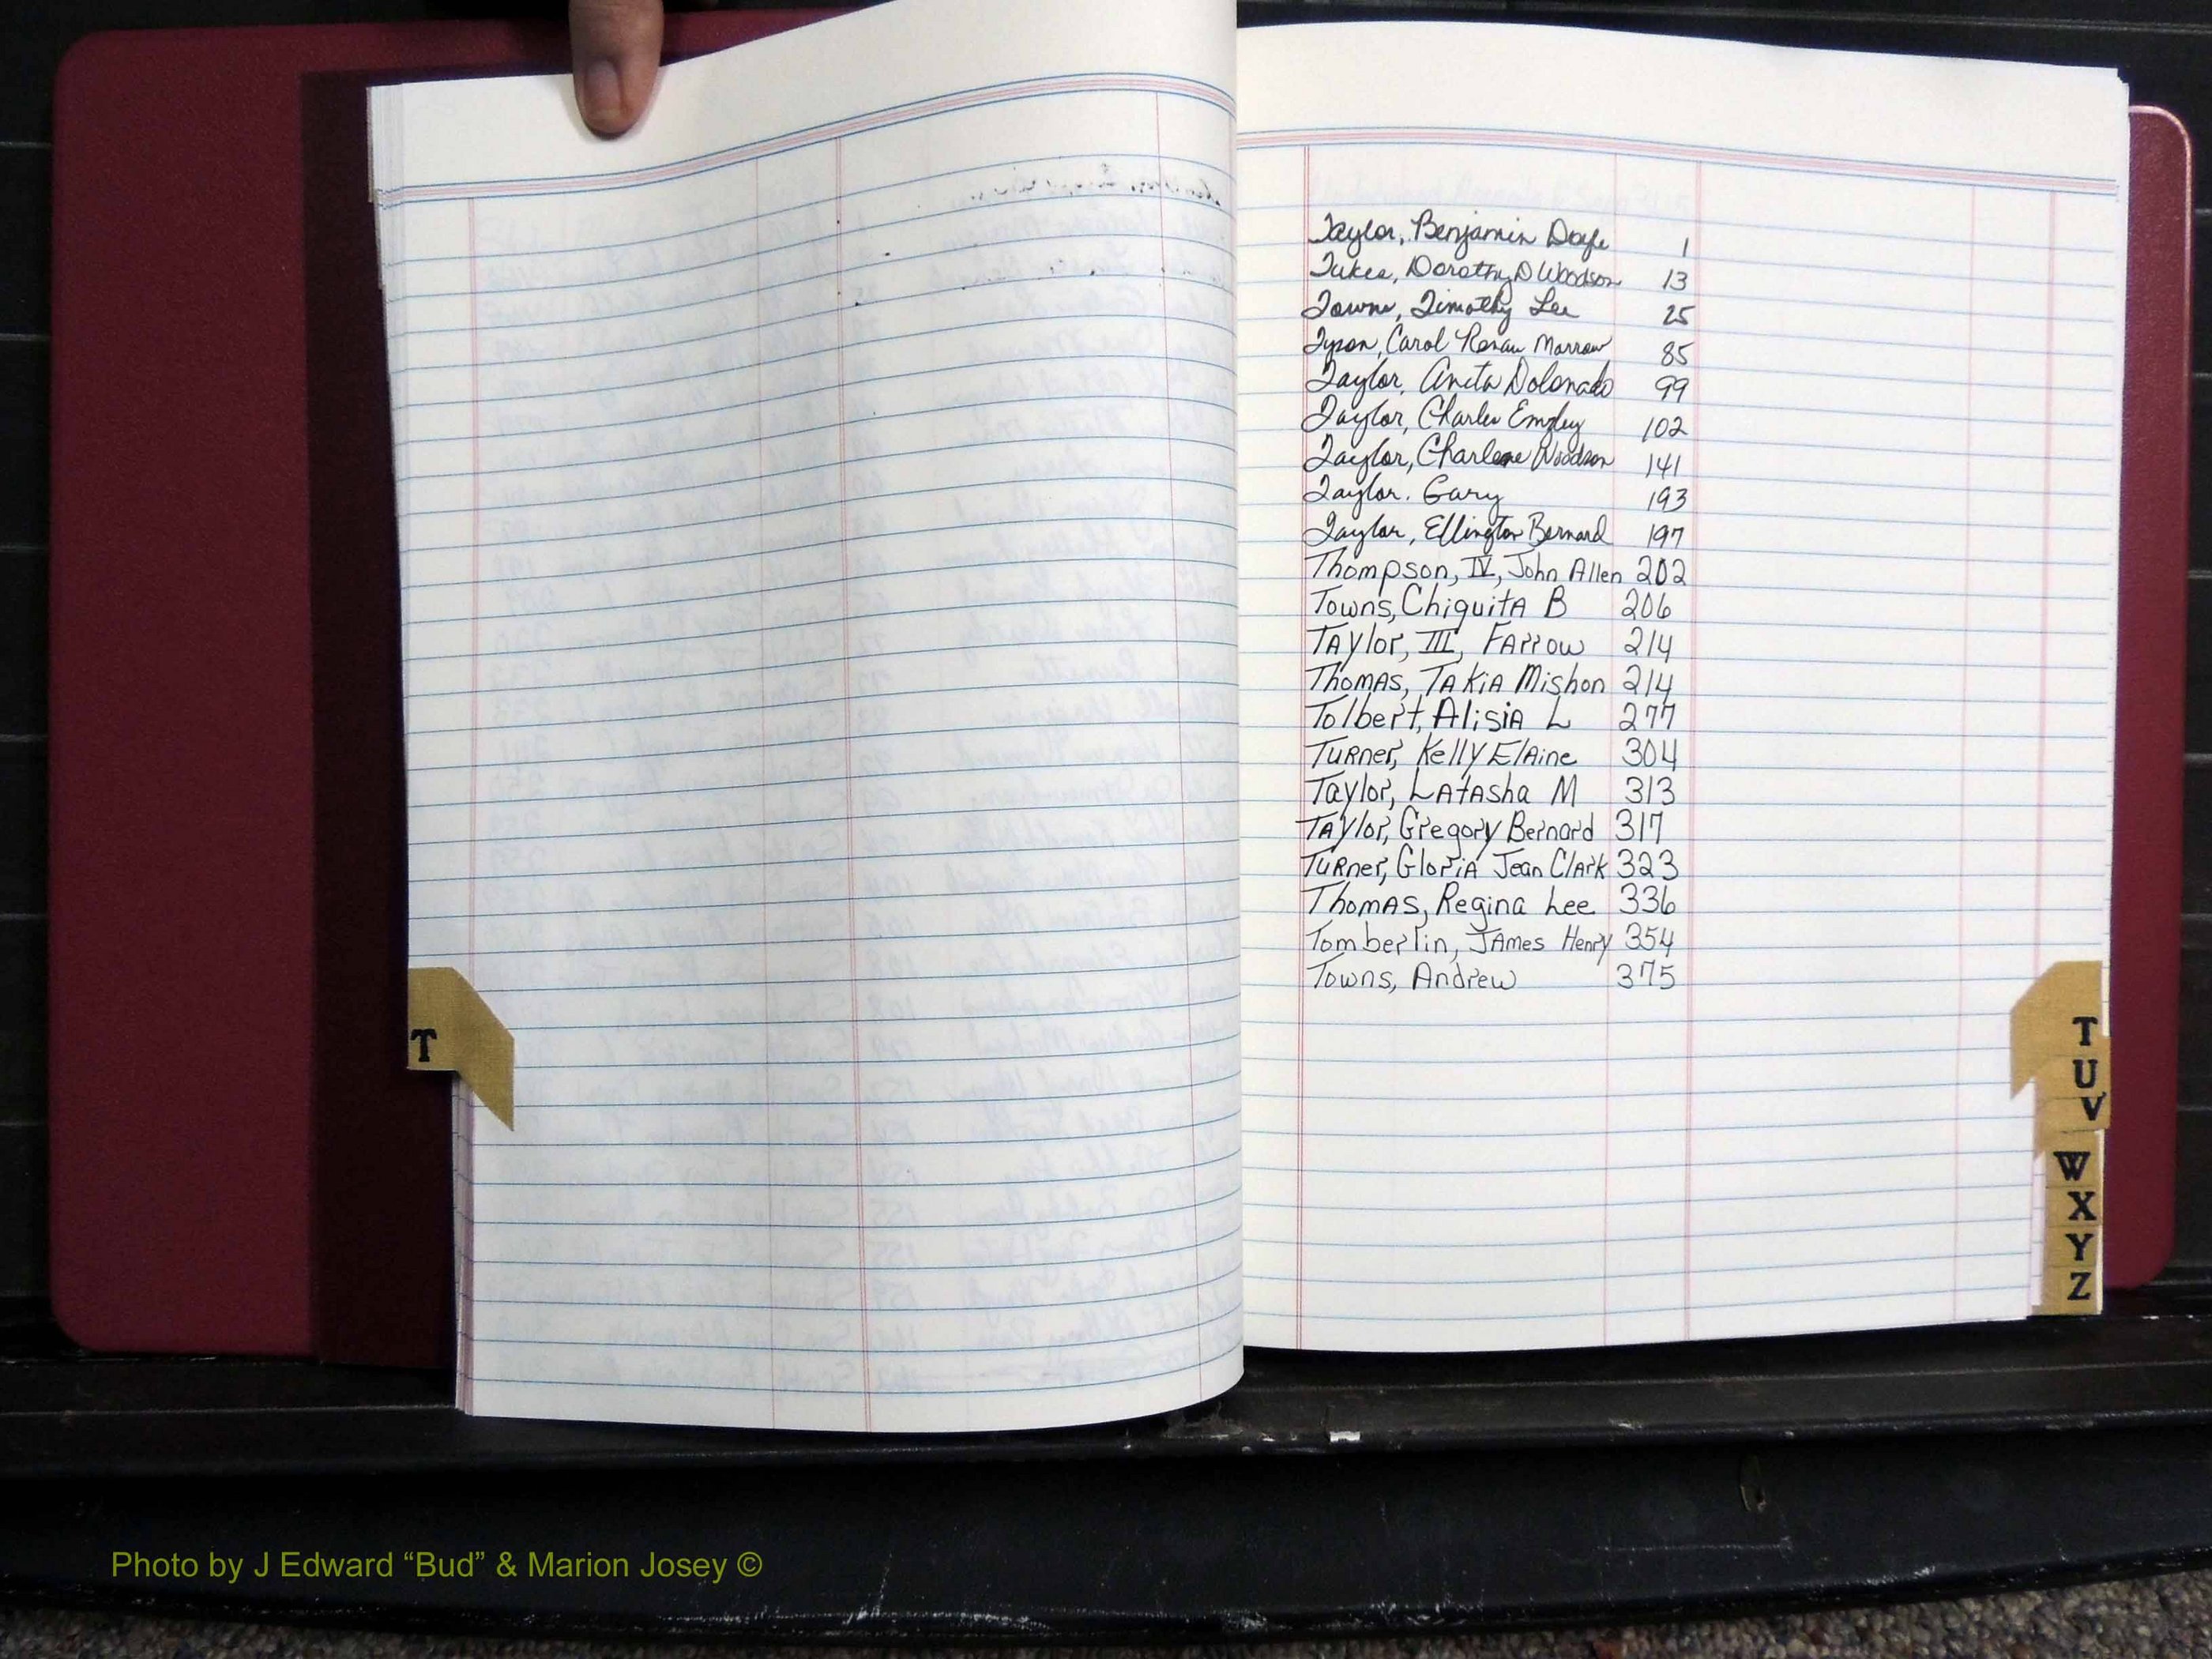 Taylor, Benjamin 1
Tukes, Dorothy D Woodson 13
Towns, Timothy Lee 25
Tyson, Carol Renau Morrow 85
Taylor, Anita Dolonado 99
Taylor, Charles Emzley 102
Taylor, Charlene Woodson 141
Taylor. Gary 193
Taylor, Ellington Bernard 197
Thompson, IV, John Allen 202
Towns, Chiquita B 206
Taylor, III, Farrow 214
Thomas, Takia Mishon 214
Tolbert, Alisia L 277
Turner, Kelly Elaine 304
Taylor, Latasha M 313
Taylor, Gregory Bernard 317
Turner, Gloria Jean Clark 323
Thomas, Regina Lee 336
Tomberlin, James Henry 354
Towns, Andrew 375
T
T
U
V
W
X
Y
Z
Photo by J Edward “Bud” & Marion Josey ©